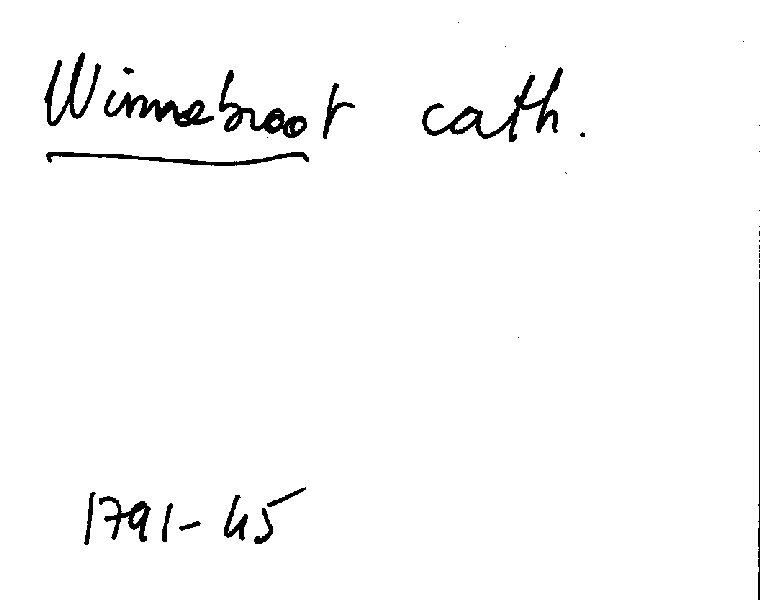 Winnebroot cath.
1791-45